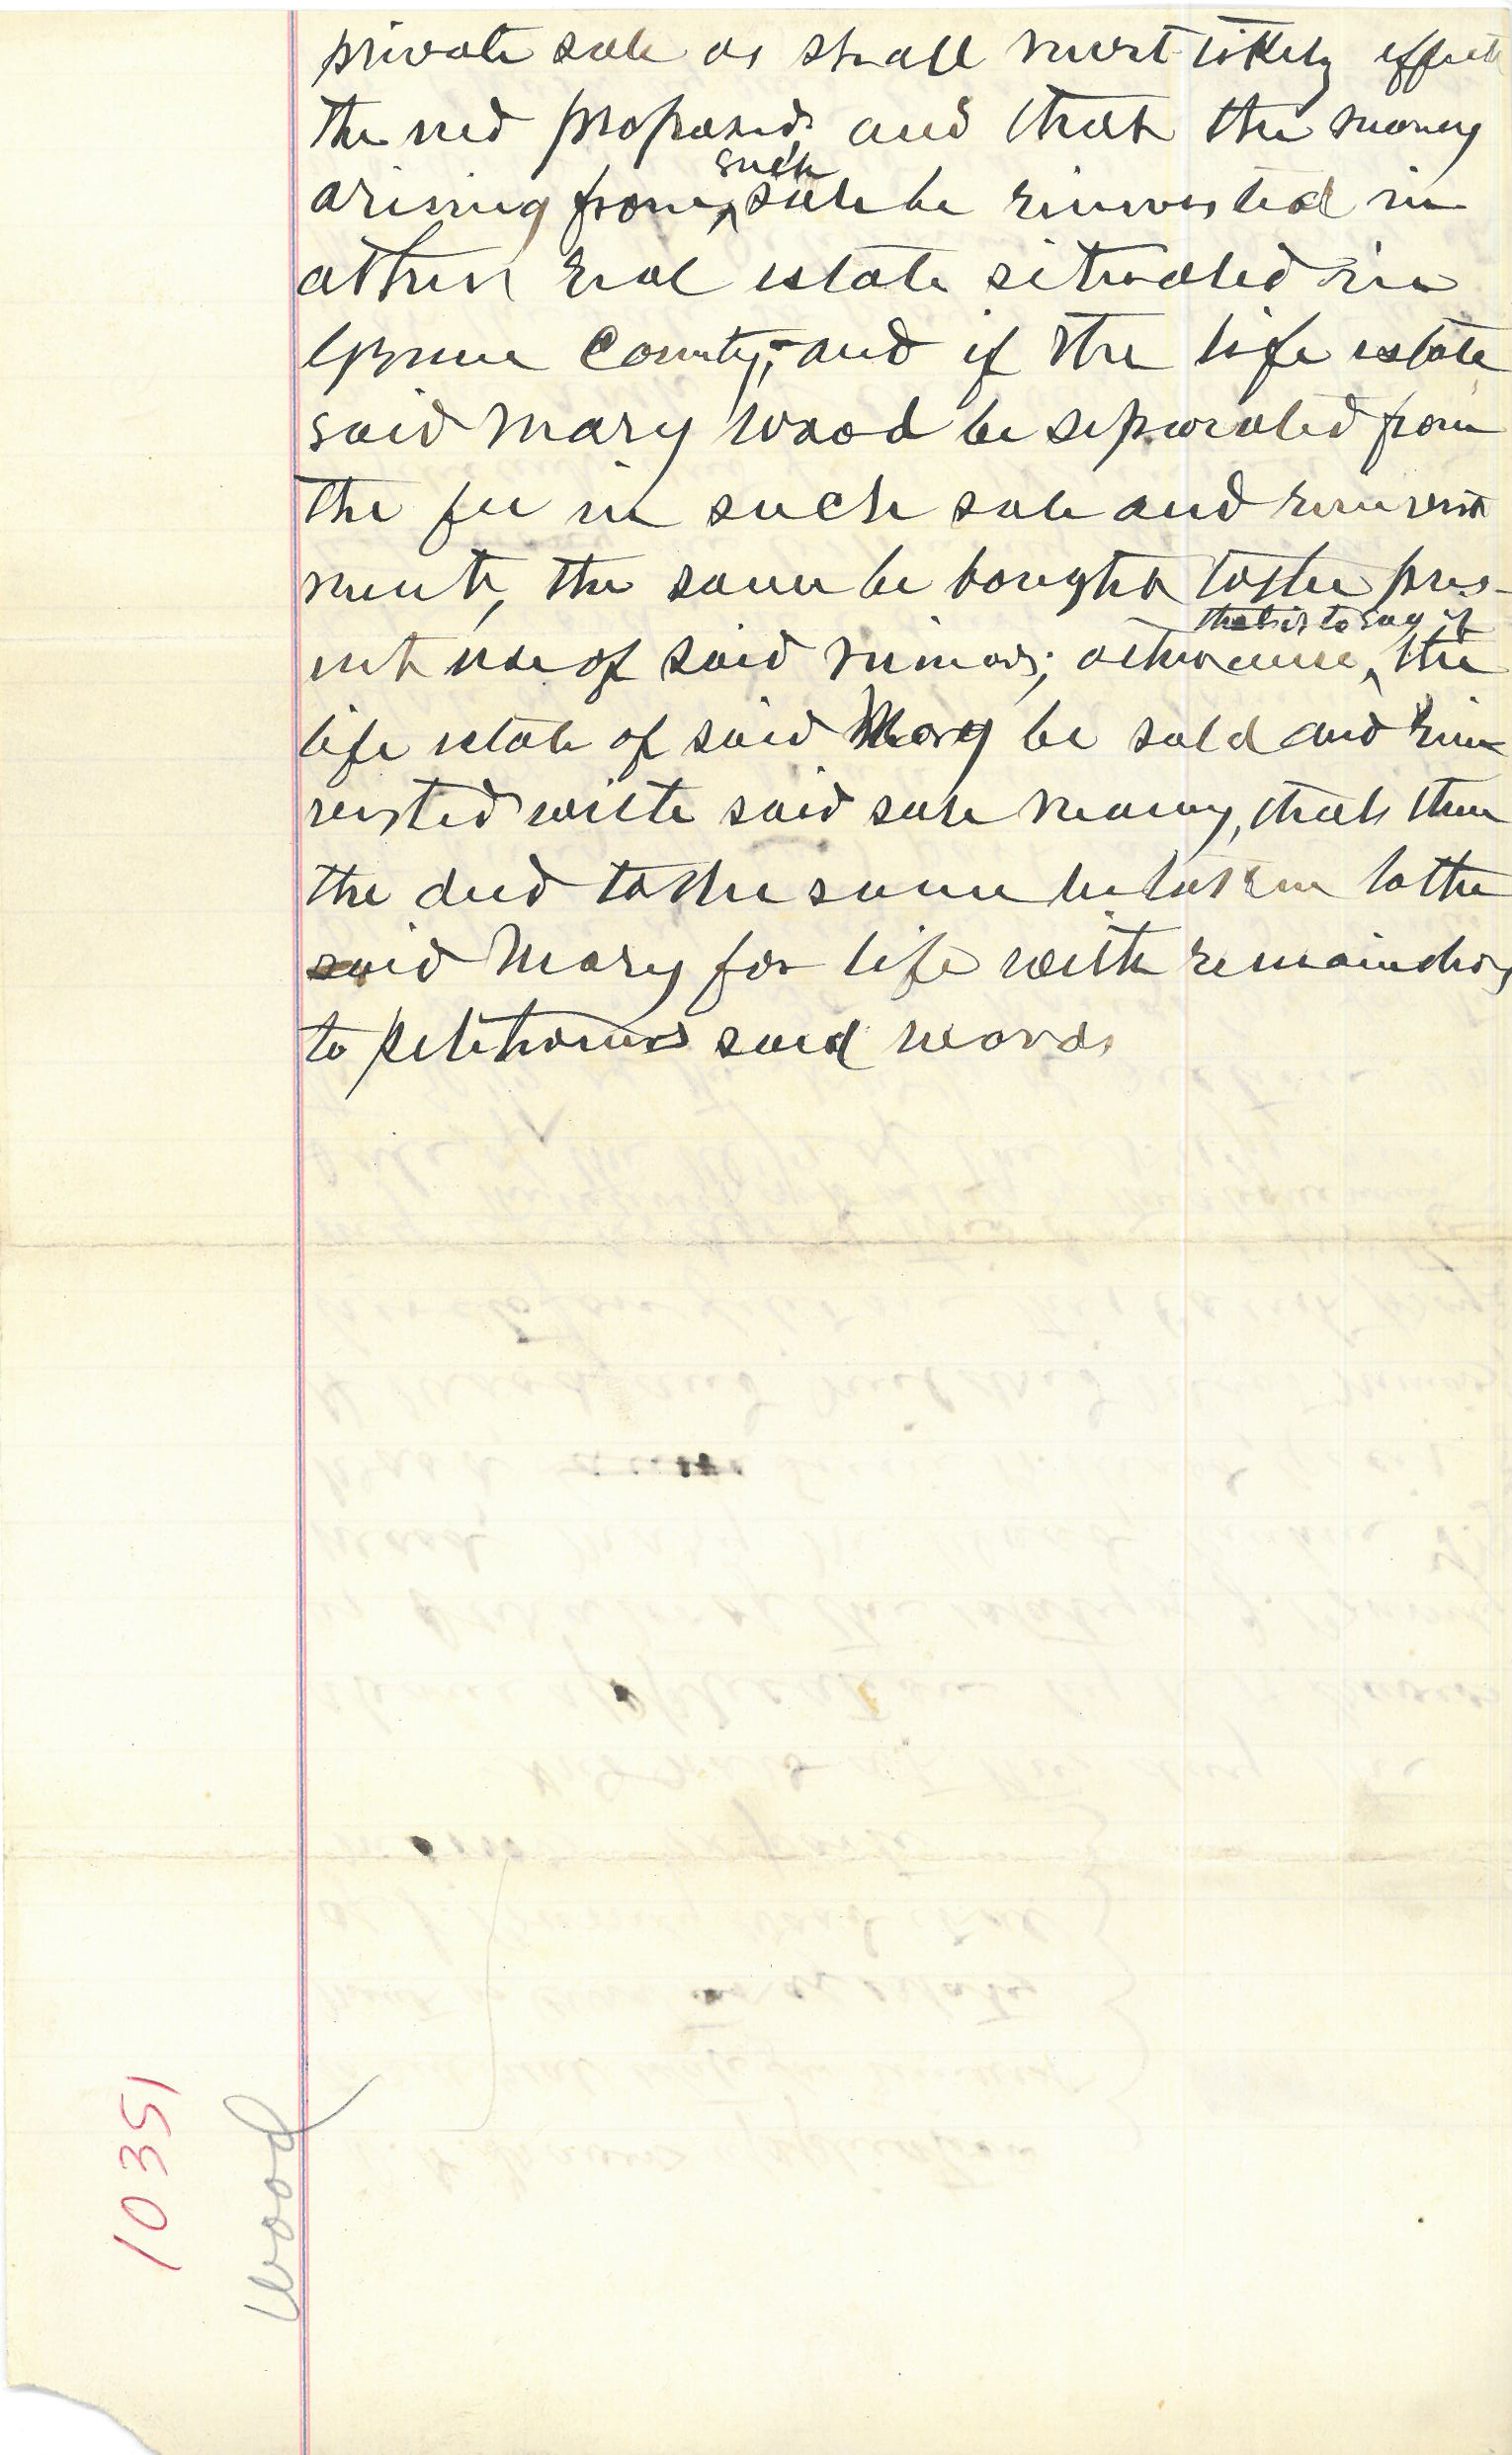 private sale as shall most likely effect
the end proposed and that the money
arising from ^such sale be reinvested in
other real estate situated in
Greene County; and if the life estate
said Mary Wood be separated from
the fee in such sale and reinvest
ment, the same be bought to the pres-
ent use of said minors; otherwise, ^that is to say if the
life estate of said Mary be sold and rein
vested with said sale money, that then
the deed to the same be taken to the
said Mary for life with remainder
to petitioners said wards
10351
Wood